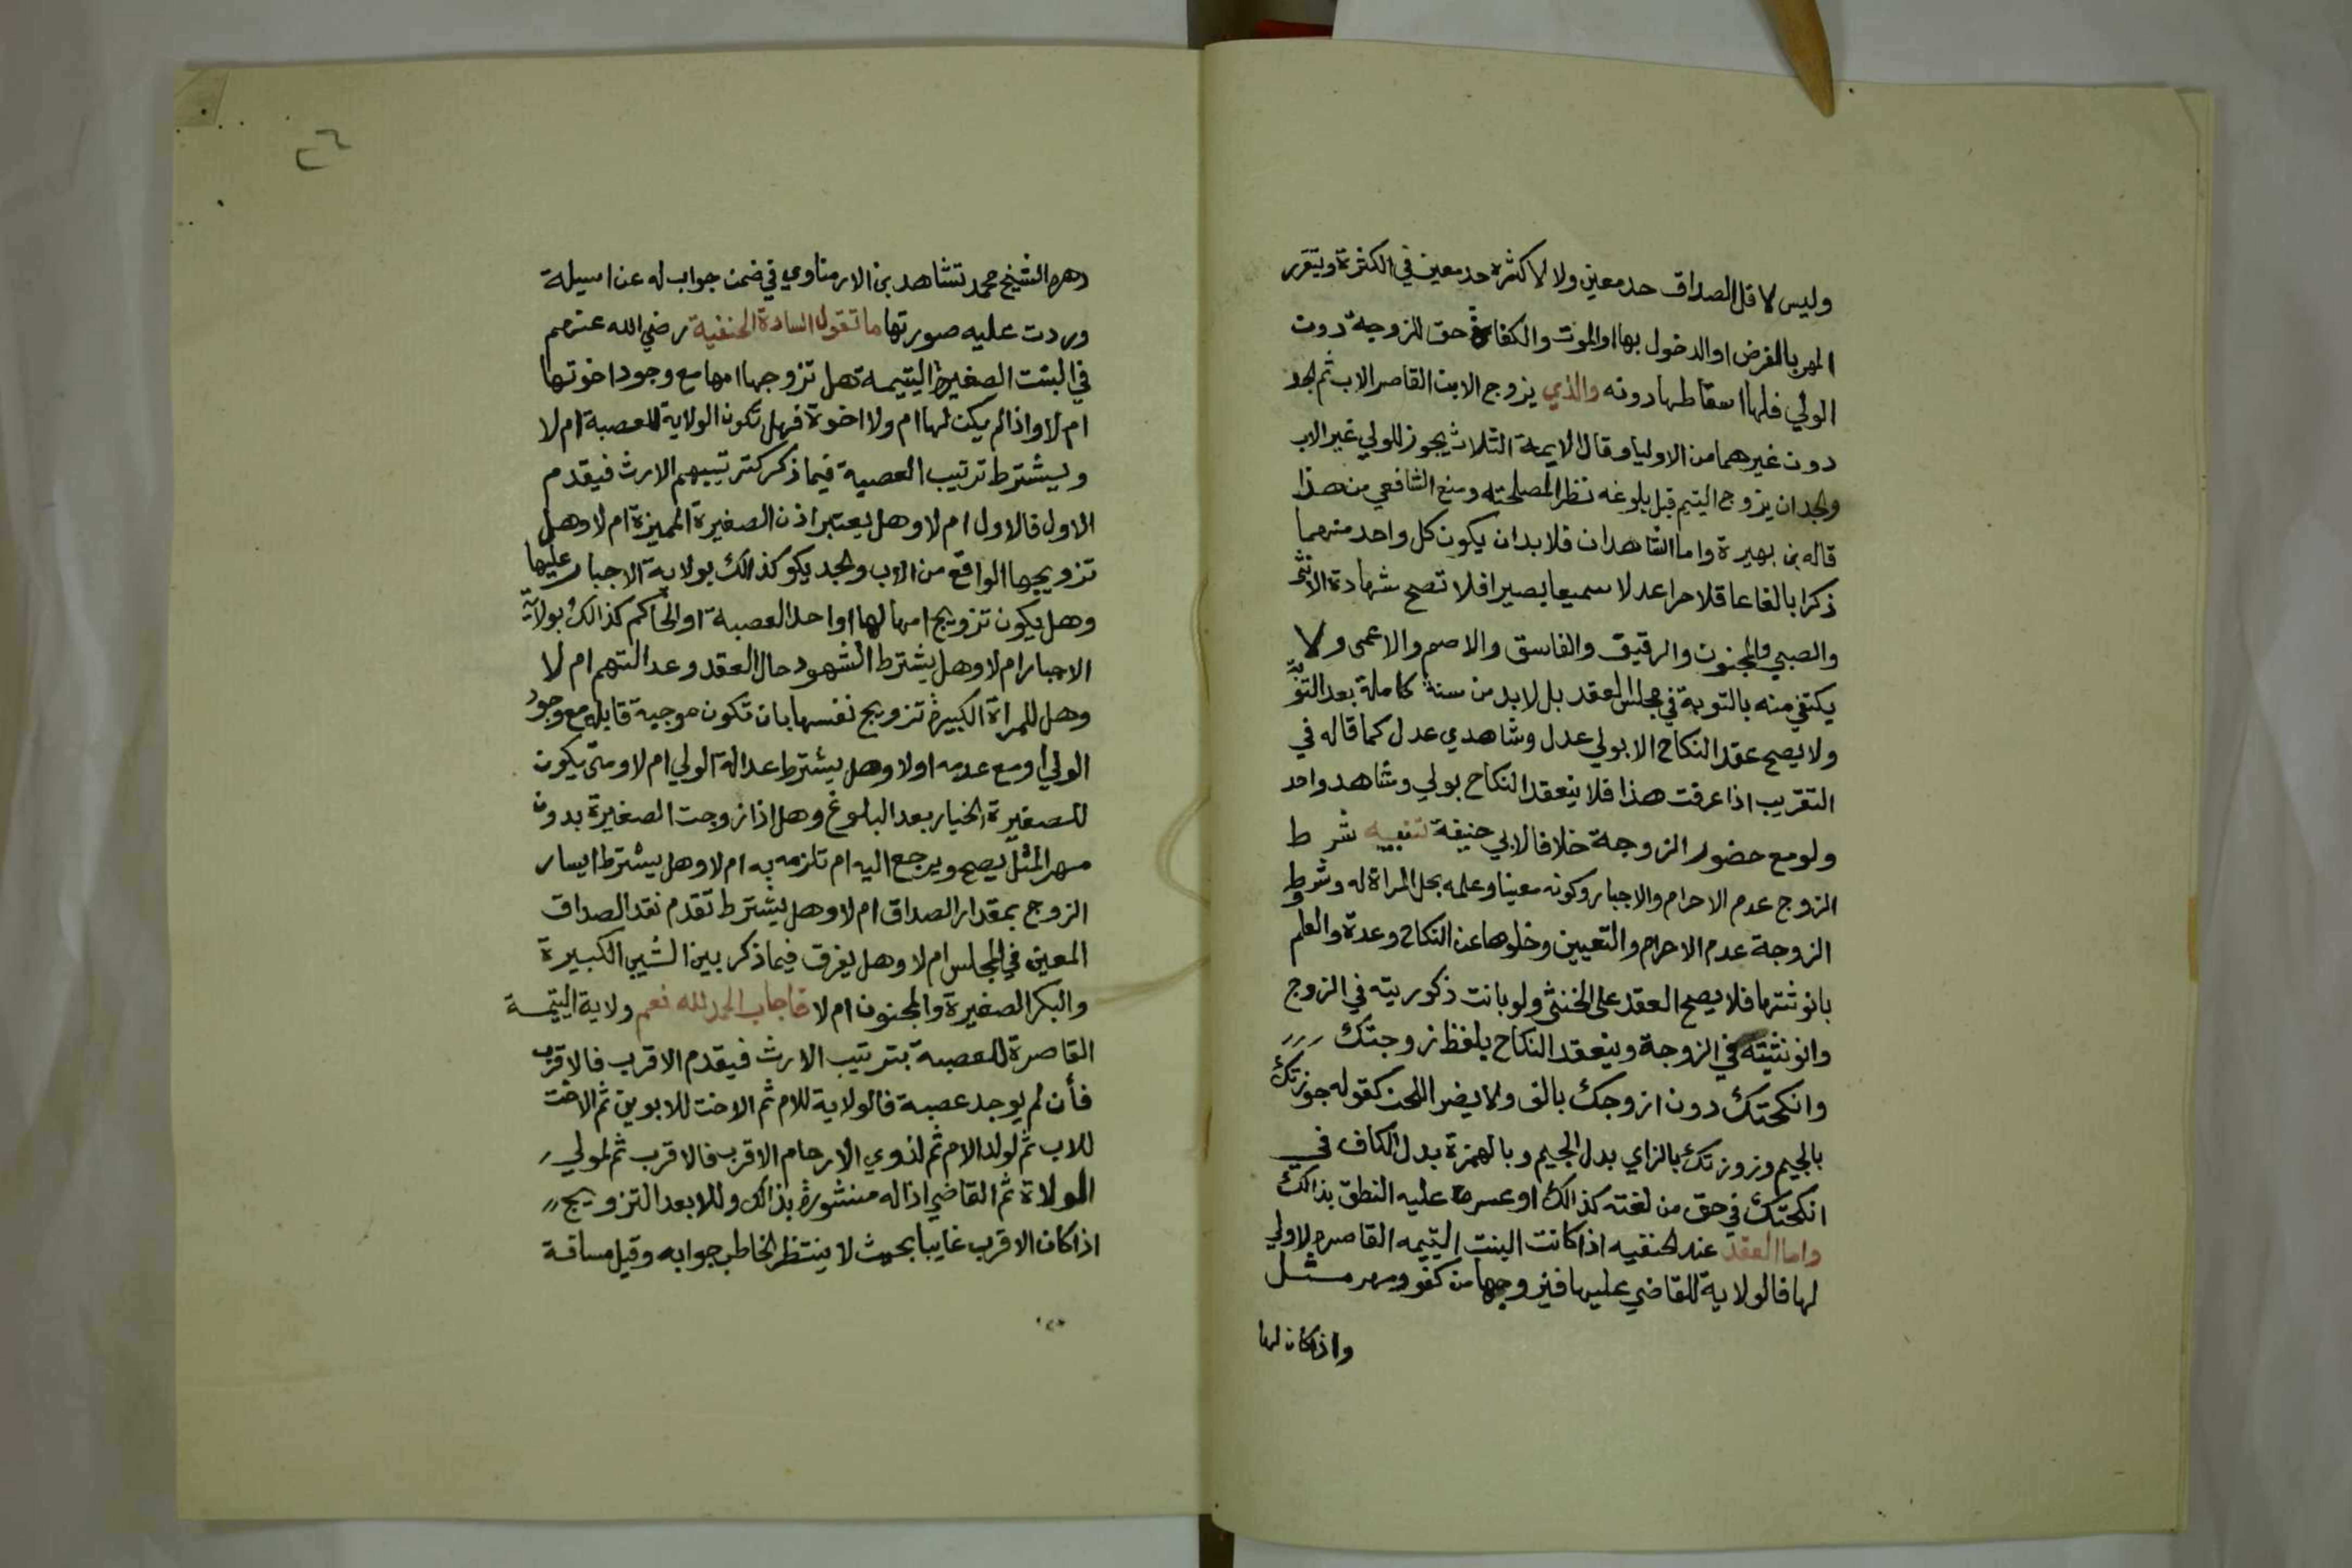 وليس لاقل الصداق حد معين ولا لاكثره حد معين في الكثرة ويتقرر
المهر بالفرض او الدخول بها او الموت والكفاة حق للزوجة دون
الولي فلها اسقاطها دونه والذي يزوج الابن القاصر الاب ثم الجد
دون غيرهما من الاوليا وقال الايمة الثلاث يجوز للولي غير الاب
والجد ان يزوج اليتيم قبل بلوغه نظرا لمصلحته ومنع الشافعي من هذا
قاله بن بهيرة واما الشاهدان فلا بد ان يكون كل واحد منهما
ذكرا بالغا عاقلا حرا عدلا سميعا بصيرا فلا تصح شهادة الانثى
والصبي والمجنون والرقيق والفاسق والاصم والاعمى ولا
يكتفي منه بالتوبة في مجلس العقد بل لا بد من سنة كاملة بعد التوبة
ولا يصح عقد النكاح الا بولي عدل وشاهدي عدل كما قاله في
التقريب اذا عرفت هذا فلا ينعقد النكاح بولي وشاهد واحد
ولو مع حضور الزوجة خلافا لابي حنيفة تنبيه شرط
الزوج عدم الاحرام والاجبار وكونه معينا وعلمه بحل المراة له وشروط
الزوجة عدم الاحرام والتعيين وخلوها عن النكاح وعدة والعلم
بانوثتها فلا يصح العقد على الخنثى ولو بانت ذكوريته في الزوج
وانونثيته في الزوجة وينعقد النكاح بلفظ زوجتك
وانكحتك دون ازوجك بالف ولا يضر اللحن كقوله جوزتك
بالجيم وزوزتك بالزاي بدل الجيم وبالهمزة بدل الكاف في
انكحتك في حق من لغته كذالك او عسر عليه النطق بذالك
واما العقد عند الحنفيه اذا كانت البنت اليتيمه القاصره لا ولي
لها فالولاية للقاضي عليها فيزوجها من كفو ومهر مثل
واذا كان لها
٢٦
دهره الشيخ محمد تشاهد بن الارمناوي في ضمن جواب له عن اسيلة
وردت عليه صورتها ما تقول السادة الحنفية رضي الله عنهم
في البنت الصغيرة اليتيمة هل تزوجها امها مع وجود اخوتها
ام لا واذا لم يكن لها ام ولا اخوة فهل تكون الولاية للعصبة ام لا
ويشترط ترتيب العصبة فيما ذكر كترتيبهم الارث فيقدم
الاول فالاول ام لا وهل يعتبر اذن الصغيرة المميزة ام لا وهل
تزويجها الواقع من الاب والجد يكو كذالك بولاية الاجبار عليها
وهل يكون تزويج امها لها او احد العصبة او الحاكم كذالك بولاية
الاجبار ام لا وهل يشترط الشهود حال العقد وعدالتهم ام لا
وهل للمراة الكبيرة تزويج نفسها بان تكون موجبة قابله مع وجود
الولي او مع عدمه اولا وهل يشترط عدالة الولي ام لا ومتى يكون
للصغيرة الخيار بعد البلوغ وهل اذا زوجت الصغيرة بدون
مهر المثل يصح ويرجع اليه ام تلزمه به ام لا وهل يشترط ايسار
الزوج بمقدار الصداق ام لا وهل يشترط تقدم نقد الصداق
المعين في المجلس ام لا وهل يفرق فيما ذكر بين الثيب الكبيرة
والبكر الصغيرة والمجنون ام لا فاجاب الحمد لله نعم ولاية اليتيمة
القاصرة للعصبة بترتيب الارث فيقدم الاقرب فالاقرب
فأن لم يوجد عصبة فالولاية للام ثم الاخت للابوين ثم الاخت
للاب ثم لولد الام ثم لذوي الارحام الاقرب فالاقرب ثم لمولي
الولاة ثم القاضي اذا له منشورة بذالك وللابعد التزويج
اذا كان الاقرب غايبا بحيث لا ينتظر الخاطب جوابه وقيل مسافة